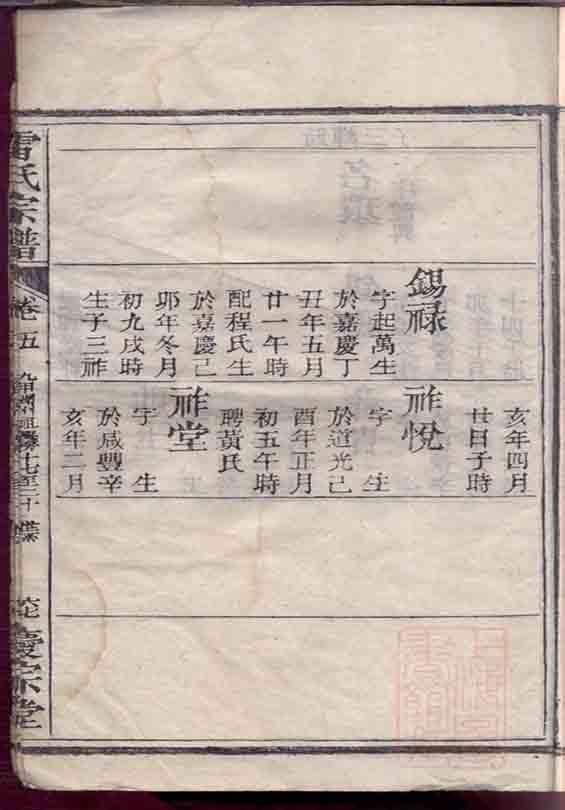 錫祿
字起萬生
於嘉慶丁
丑年五月
廿一午時
配程氏生
於嘉慶己
卯年冬月
初九戌時
生子三祚
亥年四月
廿日子時
祚悅
字 生
於道光己
酉年正月
初五午時
聘黃氏
祚堂
字 生
於咸豐辛
亥年二月
雷氏宗譜
卷五
慶宗堂